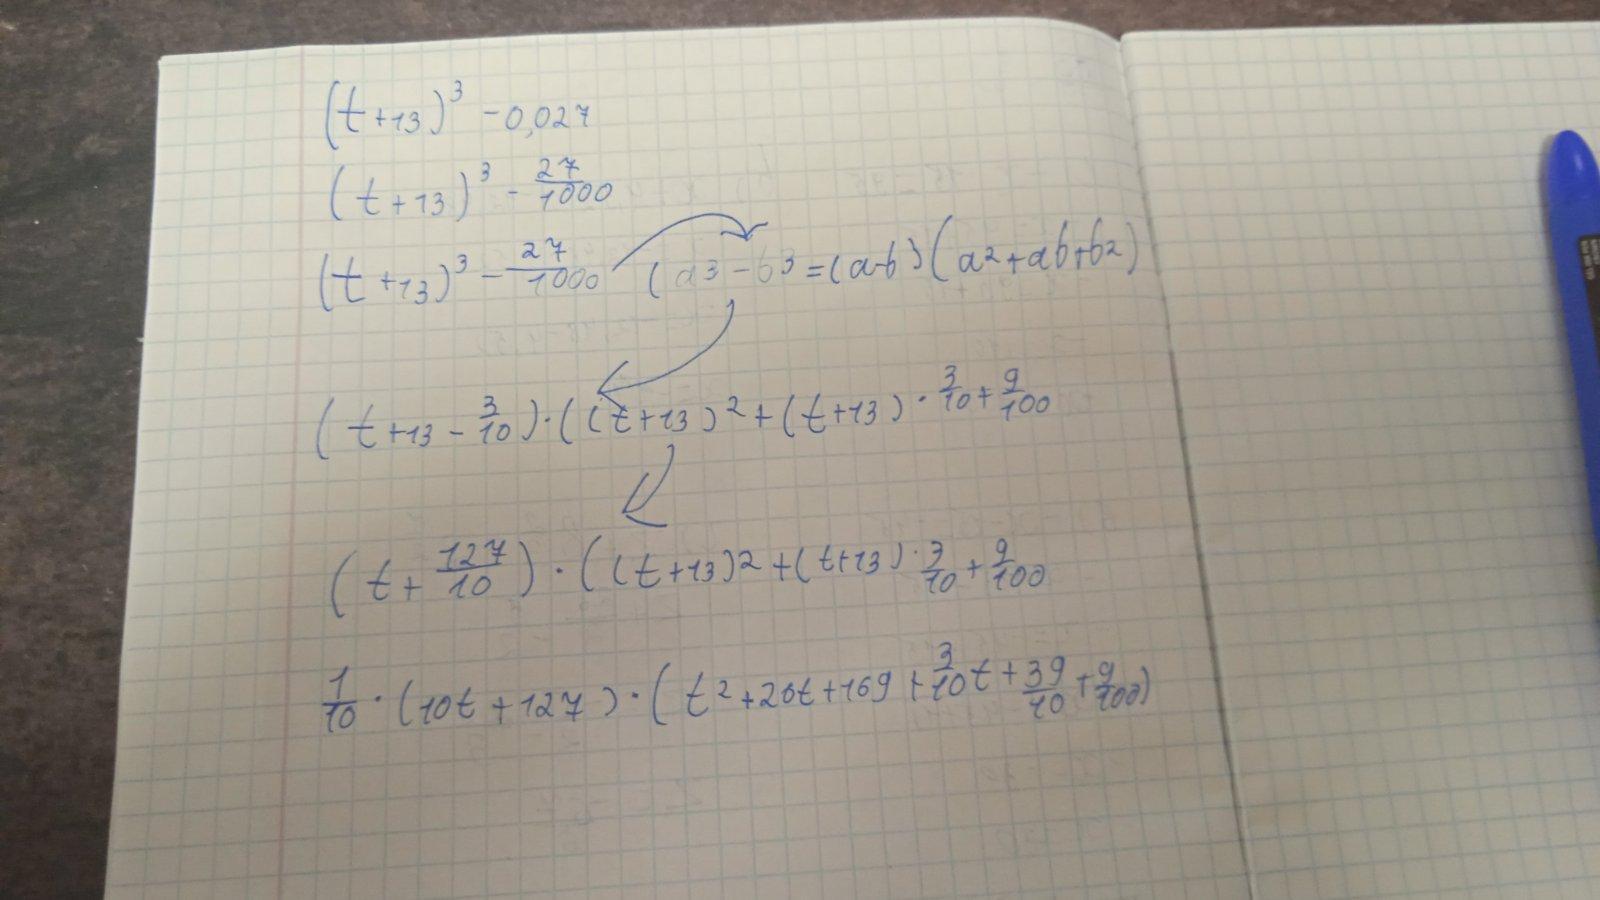 (t+13)³ - 0,027
(t+13)³ - 27/1000
(t+13)³ - 27/1000 (a³ - b³ = (a-b)(a²+ab+b²)
(t+13 - 3/10)·((t+13)² + (t+13)· 3/10 + 9/100
(t + 127/10)·((t+13)² + (t+13)· 3/10 + 9/100
1/10 · (10t + 127)·(t² + 26t + 169 + 3/10t + 39/10 + 9/100)